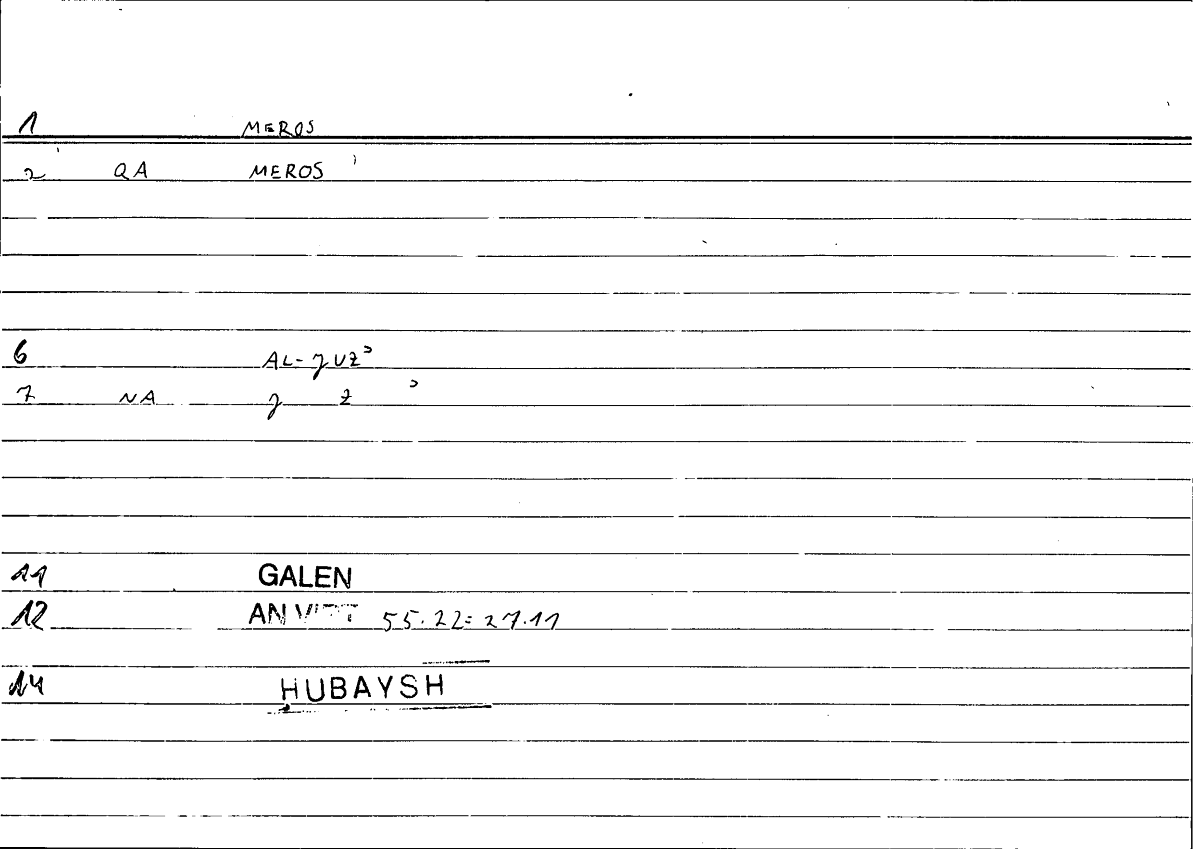 1 MEROS
2 QA MEROS
6 AL-JUZʾ
7 NA J Z ʾ
11 GALEN
12 AN VIRT 55.22=27.11
14 ḤUBAYSH